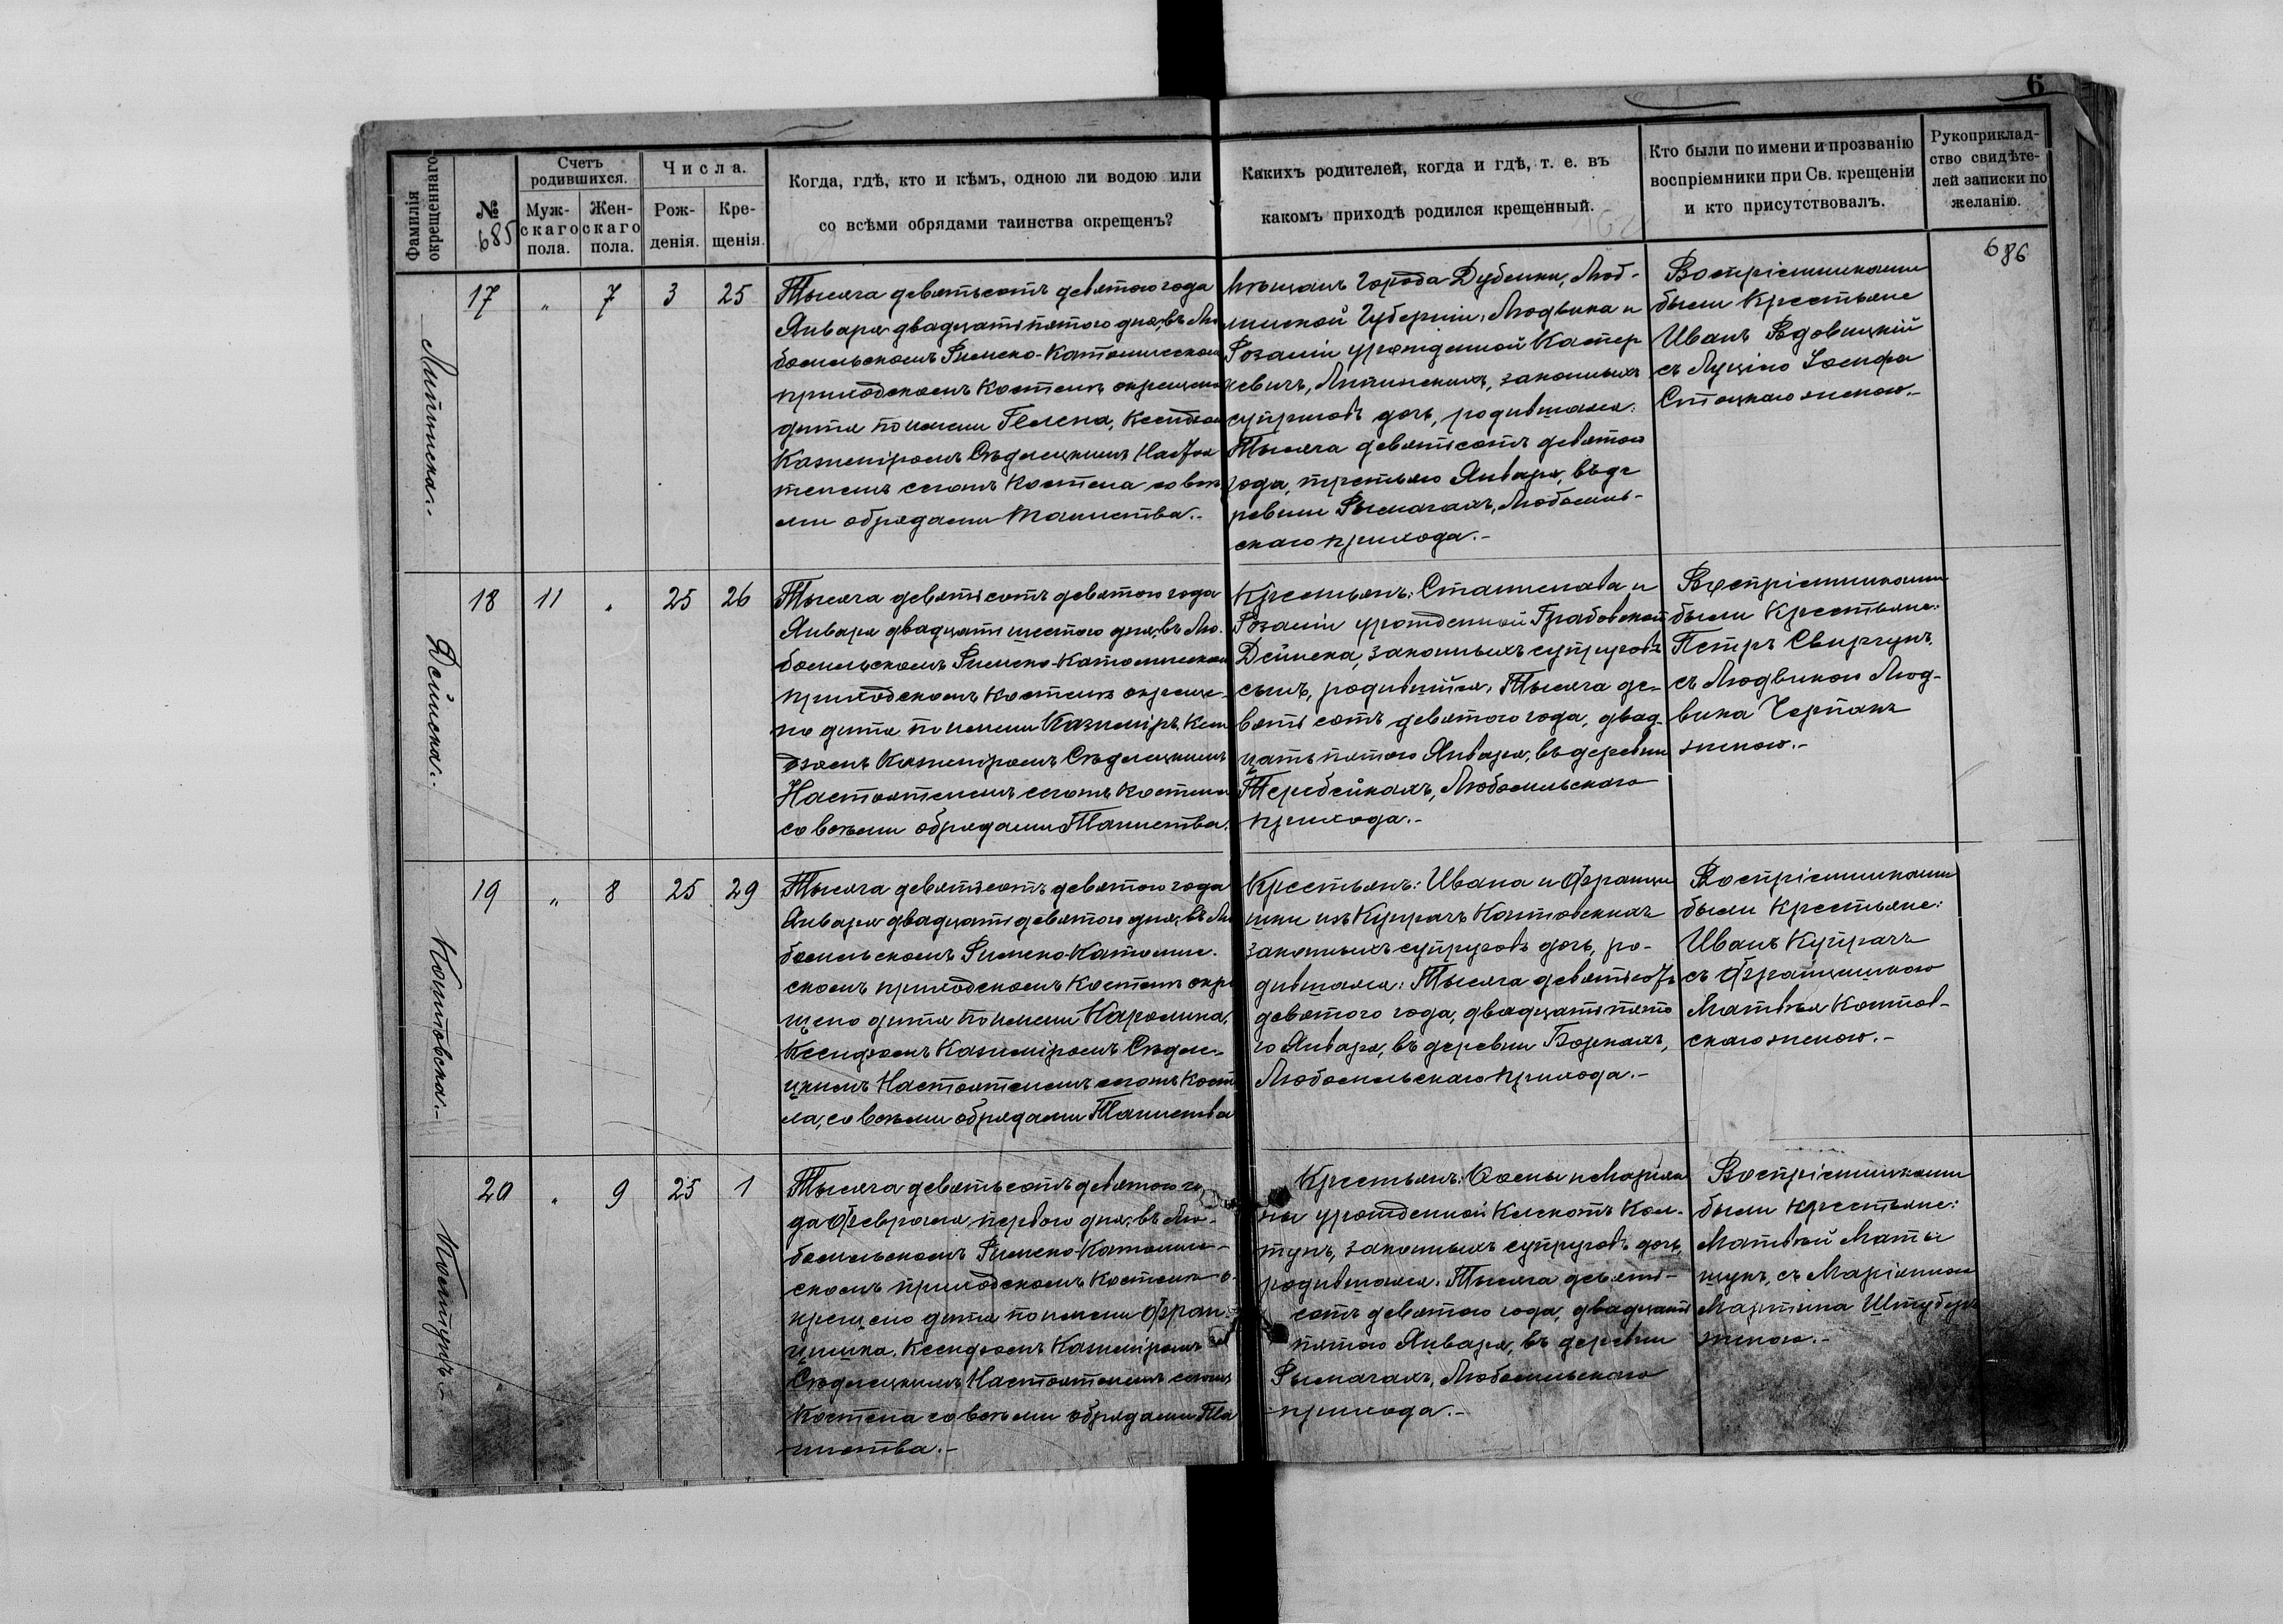 6
Фамилія
окрещеннаго
№
685
Счетъ
родившихся.
Муж-
скаго
пола.
Жен-
скаго
пола.
Числа.
Рож-
денія.
Кре-
щенія.
Когда, гдѣ, кто и кѣмъ, одною ли водою или
со всѣми обрядами таинства окрещенъ?
Какихъ родителей, когда и гдѣ, т. е. въ
какомъ приходѣ родился крещенный.
Кто были по имени и прозванію
воспріемники при Св. крещеніи
и кто присутствовалъ.
Рукоприклад-
ство свидѣте-
лей записки по
желанію.
686
Липинска.
17 " 7 3 25
Тысяча девятьсотъ девятого года
Января двадцать пятого дня, въ Лю
бомльскомъ Римско-Католическомъ
приходскомъ Костелѣ окрещено
дитя по имени Гелена, Ксендзомъ
Казимiромъ Сѣдлецкимъ Настоя
телемъ сегожъ Костела со всѣ
ми обрядами Таинства.-
Мѣщанъ города Дубенки, Люб-
линской Губерніи, Людвика и
Розаліи урожденной Каспер
кевичъ, Липинскихъ, законныхъ
супруговъ дочь, родившаяся:
Тысяча девятьсотъ девятого
года, третьяго Января, въ де
ревни Рымачахъ, Любомль-
скаго прихода.-
Воспріемниками
были Крестьяне
Иванъ Вдовицкій
съ Луціею Іосифа
Стоцкаго женою.-
Дейнека.
18 11 " 25 26
Тысяча девятьсотъ девятого года
Января двадцать шестого дня, въ Лю-
бомльскомъ Римско-Католическомъ
приходскомъ Костелѣ окреще-
но дитя по имени Казимiръ, Ксен
дзомъ Казимiромъ Сѣдлецкимъ
Настоятелемъ сегожъ Костела
со всѣми обрядами Таинства.
Крестьянъ: Станислава и
Розаліи урожденной Грабовской
Дейнека, законныхъ супруговъ
сынъ, родившійся: Тысяча де-
вятьсотъ девятого года, двад-
цать пятого Января, въ деревни
Теребейкахъ, Любомльскаго
прихода.-
Воспріемниками
были Крестьяне:
Петръ Свиргунъ
съ Людвикою Люд-
вика Черпакъ
женою.-
Контовска.-
19 " 8 25 29
Тысяча девятьсотъ девятого года
Января двадцать девятого дня, въ Лю
бомльскомъ Римско-Католиче-
скомъ приходскомъ Костелѣ окре
щено дитя по имени Каролина,
Ксендзомъ Казимiромъ Сѣдле-
цкимъ Настоятелемъ сегожъ Косте
ла, со всѣми обрядами Таинства
Крестьянъ: Ивана и Францы
шки изъ Купрачъ Контовскихъ
законныхъ супруговъ дочь, ро-
дившаяся: Тысяча девятьсотъ
девятого года, двадцать пято
го Января, въ деревни Боркахъ,
Любомльскаго прихода.-
Воспріемниками
были Крестьяне:
Иванъ Купрачъ
съ Францишкою
Матвѣя Контов-
скаго женою.-
Колтунъ.-
20 " 9 25 1
Тысяча девятьсотъ девятого го
да Февраля первого дня, въ Лю-
бомльскомъ Римско-Католиче-
скомъ приходскомъ Костелѣ о-
крещено дитя по имени Фран-
цишка, Ксендзомъ Казимiромъ
Сѣдлецкимъ Настоятелемъ сегожъ
Костела со всѣми обрядами Та
инства.-
Крестьянъ: Фомы и Маріан
ны урожденной Клекотъ Кол-
тунъ, законныхъ супруговъ дочь,
родившаяся: Тысяча девять-
сотъ девятого года, двадцать
пятого Января, въ деревни
Рымачахъ, Любомльскаго
прихода.-
Воспріемниками
были Крестьяне:
Матвѣй Маты
щукъ, съ Маріанною
Мартина Штуберъ
женою.-